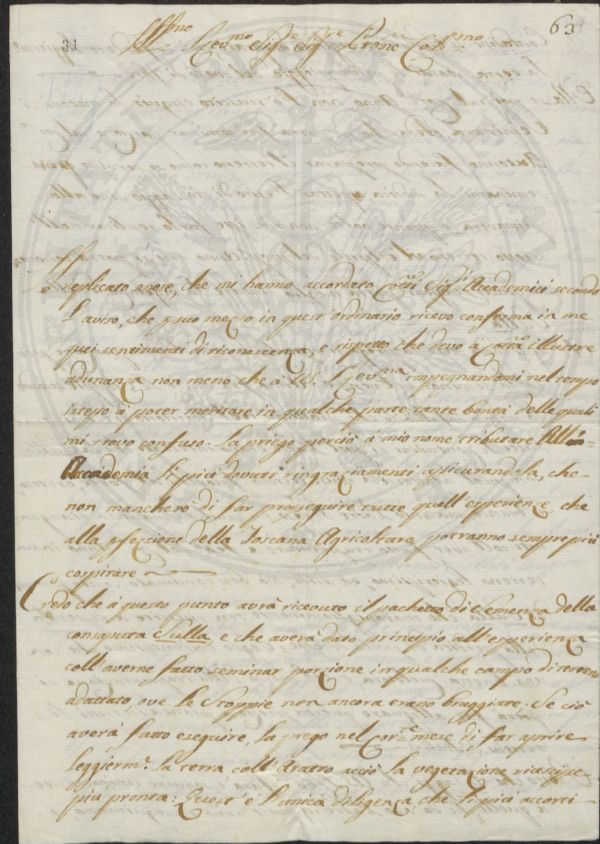 63
31
Ill.mo Sig.re Sig.re Prone Col.mo
replicato onore, che mi hanno accordato Cotti Sig.ri Accademici secondo
l'aviso, che p suo mezzo in quest'ordinario ricevo conferma in me
quei sentimenti di riconoscenza, e rispetto che devo à Cotta Illustre
adunanza non meno che à V.S. Ill.ma impegnandomi nel tempo
istesso à poter meritare in qualche parte tante bontà delle quali
mi trovo confuso. La priego perciò à mio nome tributare All'
Accademia li più dovuti ringraziamenti assicurandola, che
non mancherò di far proseguire tutte quell'esperienze che
alla pfezione della Toscana Agricoltura potranno semprepiù
cospirare
Credo che à questo punto avrà ricevuto il pachetto di semenza della
consaputa Sulla, e che averà dato principio all'esperienza
coll'averne fatto seminar porzione in qualche campo di terreno
adattato, ove le stoppie non ancora erano bruggiate. Se ciò
averà fatto eseguire, la prego nel cor.e mese di far aprire
leggierm.e la terra coll'Aratro acciò la vegetazione riesca
più pronta: Quest'è l'unica diligenza che li più accorti